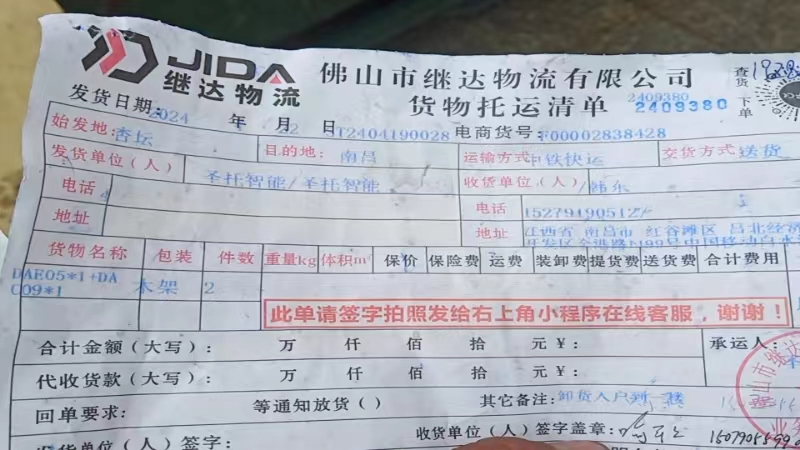 JIDA
继达物流
佛山市继达物流有限公司
货物托运清单
2409380
2409380
查货
下单
发货日期: 2024 年 22 月 日 T2404190028 电商货号: F00002838428
始发地: 杏坛 目的地: 南昌 运输方式 中铁快运 交货方式 送货
发货单位(人) 圣托智能/圣托智能 收货单位(人) /韩东
电话 电话 15279190512/
地址 地址 江西省 南昌市 红谷滩区 昌北经济
货物名称 包装 件数 重量kg 体积m³ 保价 保险费 运费 装卸费 提货费 送货费 合计费用
DAE05*1+DA
C09*1 木架 2
此单请签字拍照发给右上角小程序在线客服，谢谢！
合计金额(大写): 万 仟 佰 拾 元 ¥: 承运人:
代收货款(大写): 万 仟 佰 拾 元 ¥:
回单要求: 等通知放货( ) 其它备注: 卸货入户到一楼
发货单位(人)签字: 收货单位(人)签字盖章: